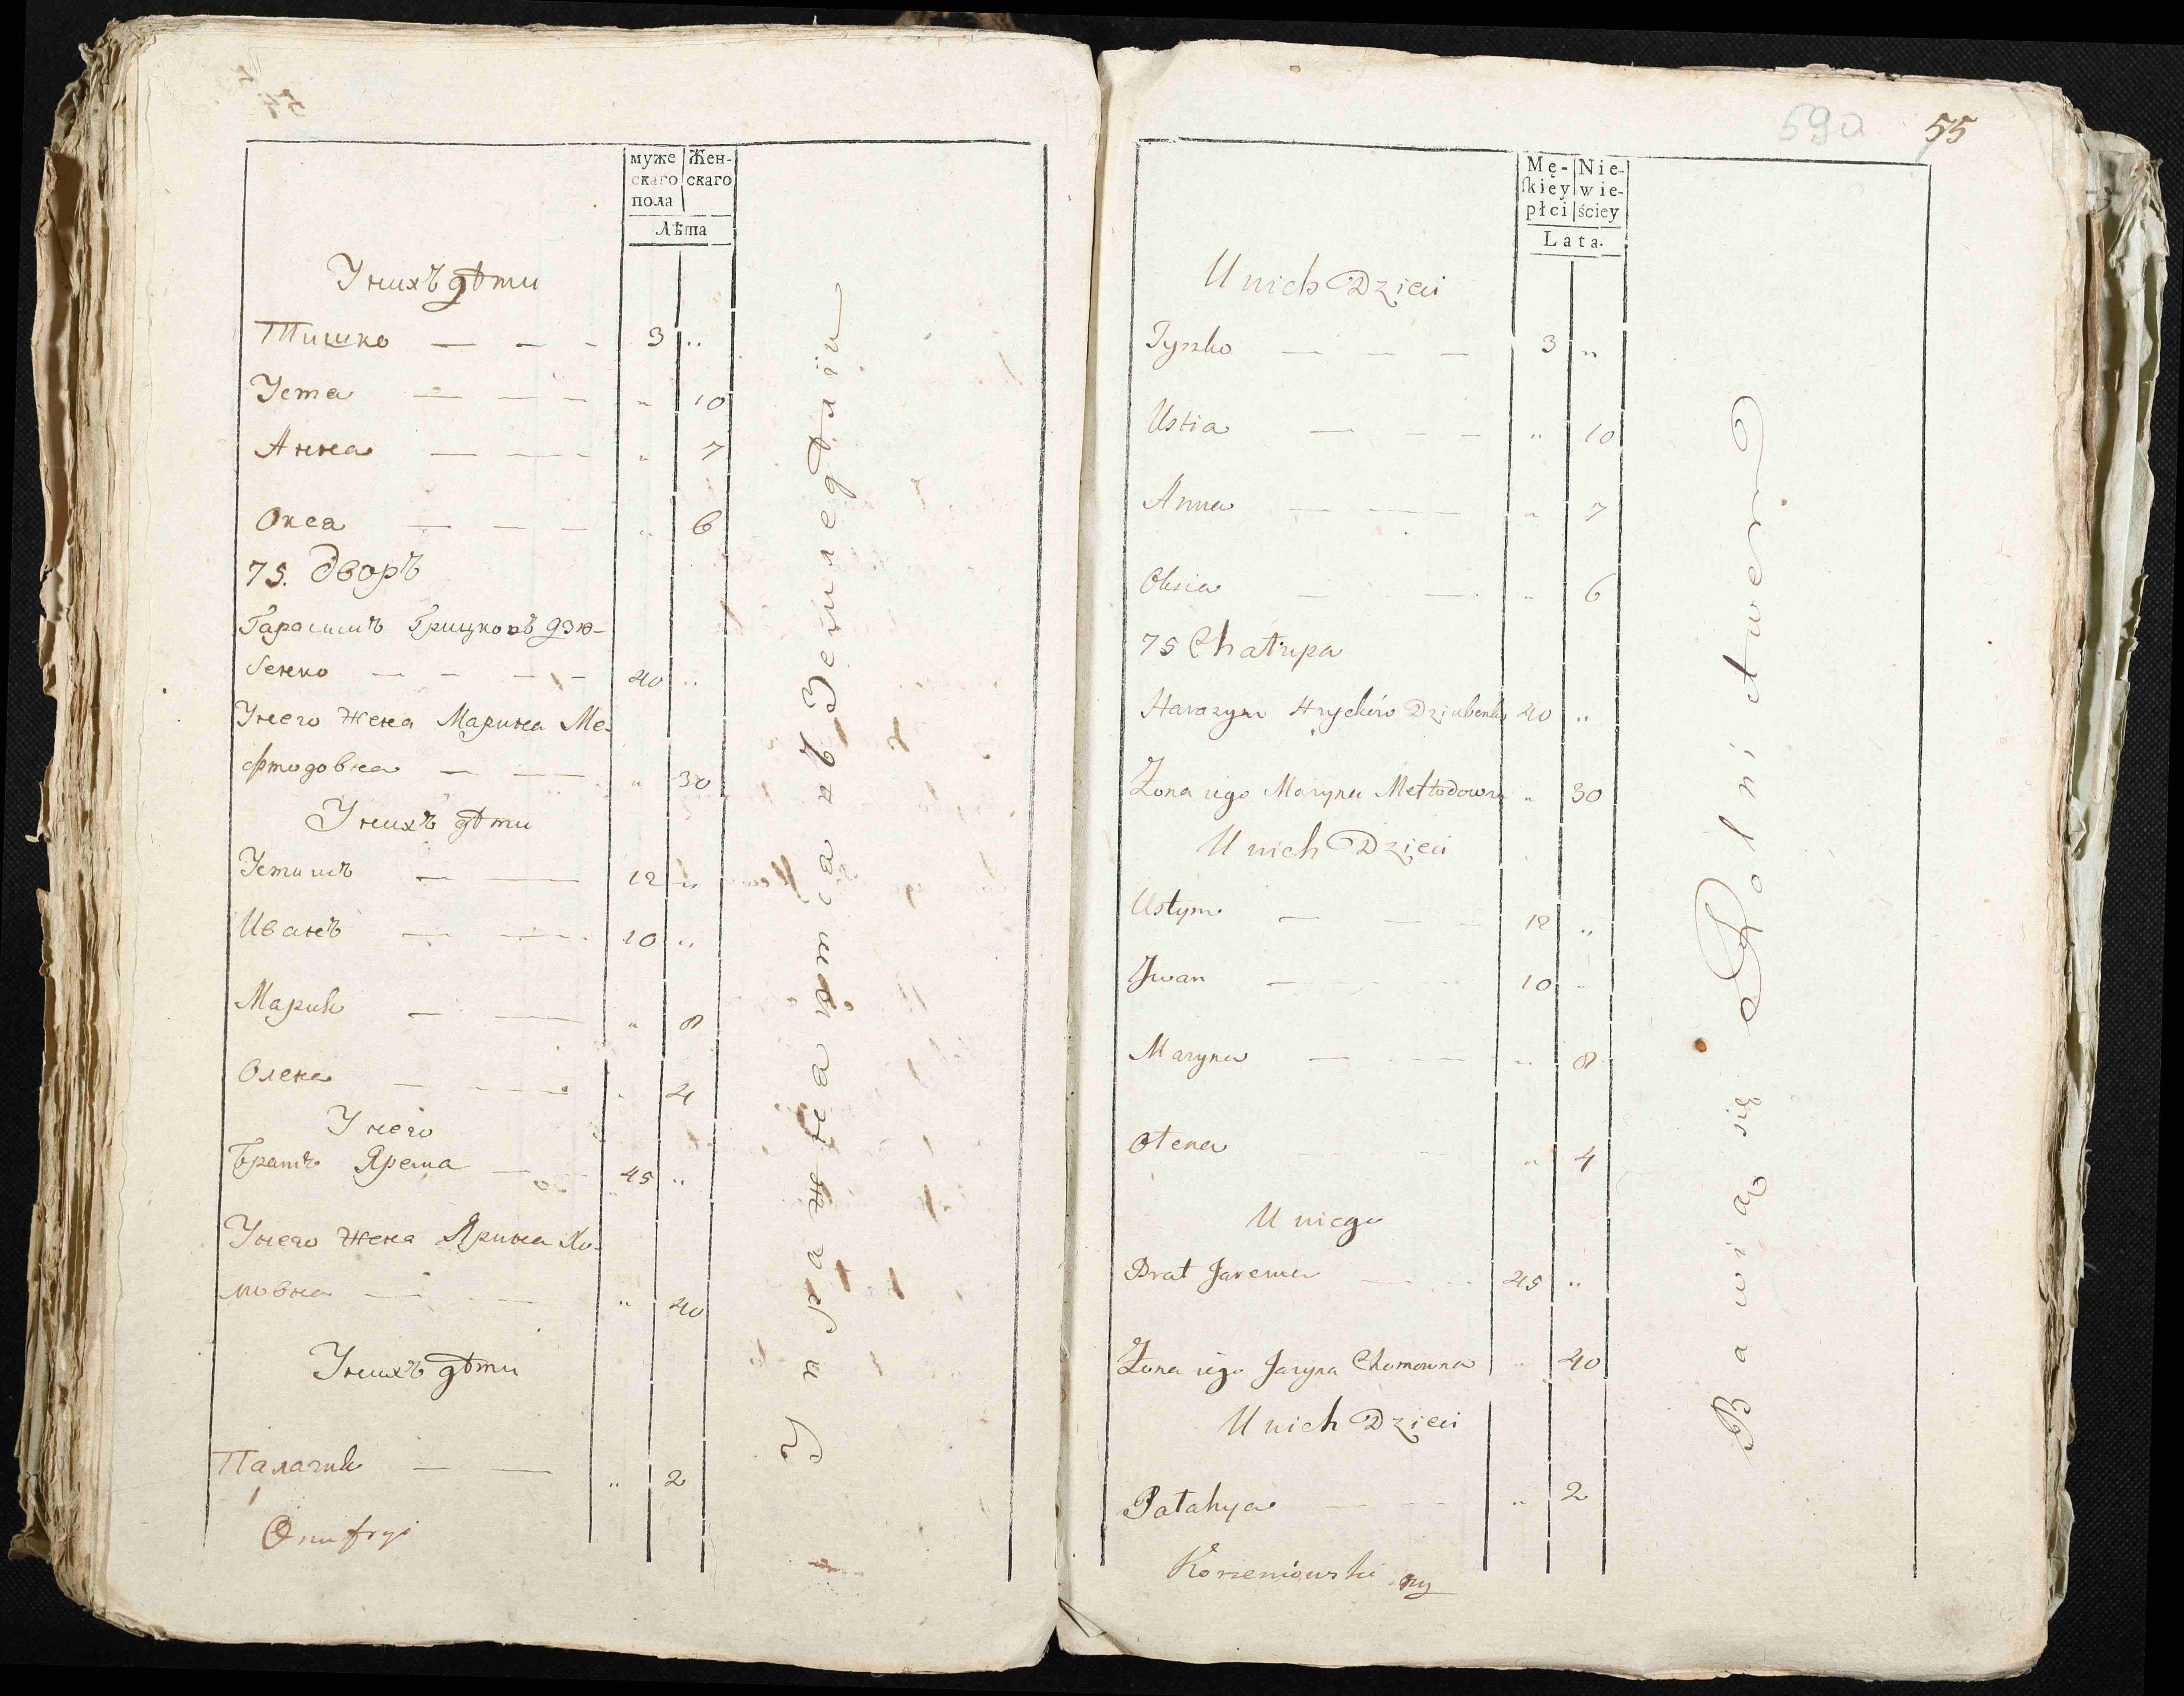 муже Жен-
скаго скаго
пола
Лѣта
У нихъ дѣти
Тишко — — — 3 "
Устя — — — " 10
Анна — — — " 7
Окся — — — " 6
75. дворъ
Гарасимъ Грицковъ Дзю-
бенко — — — — 40 "
У него жена Марина Ме-
фтодовна — — " 30
У нихъ дѣти
Устимъ — — 12 "
Иванъ — — 10 "
Марин — — " 8
Олена — — " 4
У него
Братъ Ярема — — 45 "
У него жена Ярина Хо-
мовна — — — " 40
У нихъ дѣти
— — " 2
Onufryi
Упражняются въ Земледѣліи
590 55
Mę- Nie-
ſkięy wie-
płci ściey
Lata.
U nich Dzieci
Tyszko — — — 3 "
Ustia — — — " 10
Anna — — — " 7
Oksia — — — " 6
75 Chałupa
Harazym Hrycków Dziubenko 40 "
Żona iego Maryna Mettodowna " 30
U nich Dzieci
Ustym — — — 12 "
Jwan — — — 10 "
Maryna — — — " 8
Ołena — — — " 4
U niego
Brat Jarema — — — 45 "
Żona iego Jaryna Chomowna " 40
U nich Dzieci
Pałahya — — " 2
Korzeniowski
Bawią się Rolnictwem